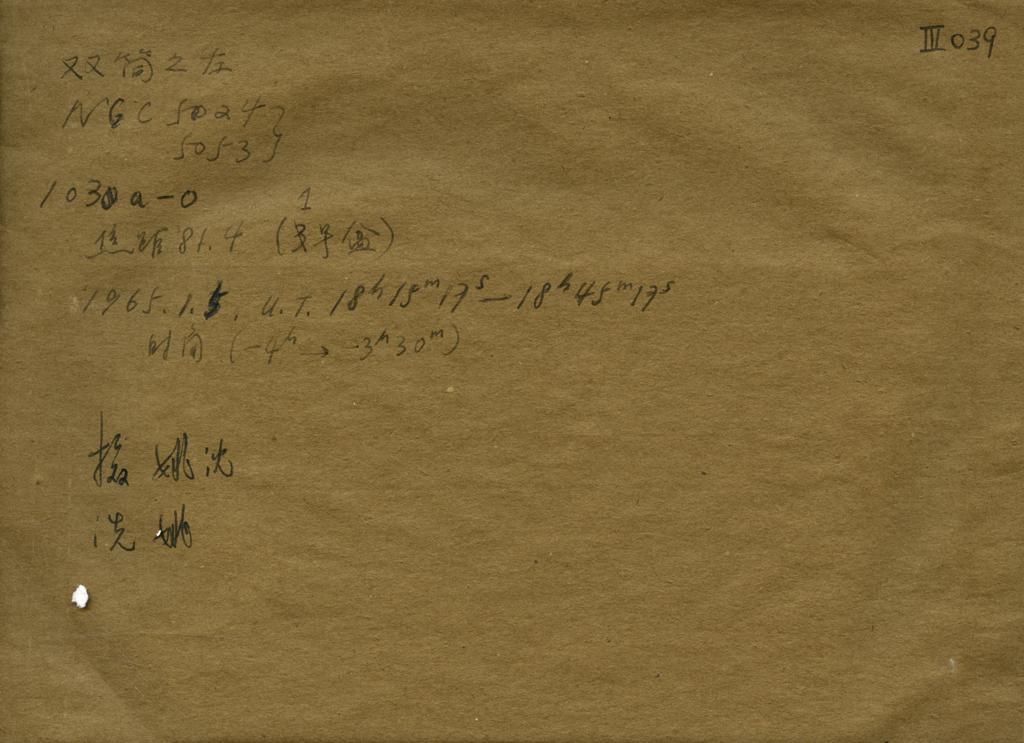 III 039
双筒之左
NGC 5024 }
5053 }
1030a-0 1
焦距 81.4 (
1965.1.5. U.T. 18h15m17s — 18h45m17s
时角 (-4h → -3h30m)
摄 姚沈
洗 姚